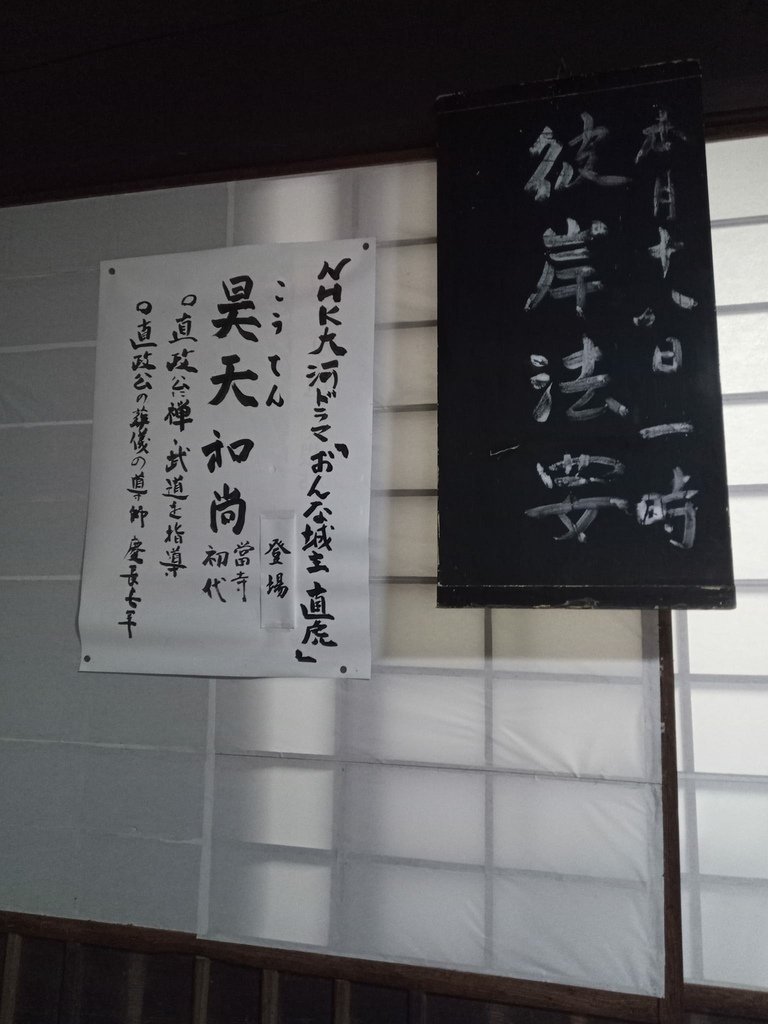 本月十八日一時
彼岸法要
NHK大河ドラマ「おんな城主 直虎」
登場
こうてん
昊天和尚
當寺
初代
○直政公に禅・武道を指導
○直政公の葬儀の導師 慶長七年